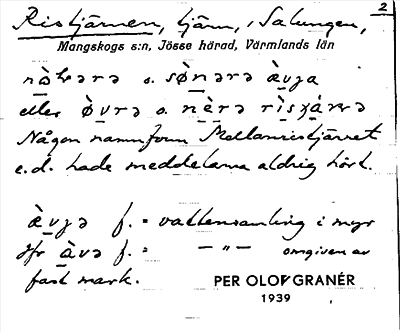 Ristjärnen, tjärn, i Salungen, 2
Mangskogs s:n, Jösse härad, Värmlands län
o. sø̀nərə àvja
eller ø̀vrə o. nèrə
Någon namnform Mellanristjärnet
e.d. hade meddelarna aldrig hört.
àvjə f. = vattensamling i myr
jfr àvə f. = — " — omgiven av
fast mark.
PER OLOF GRANÉR
1939